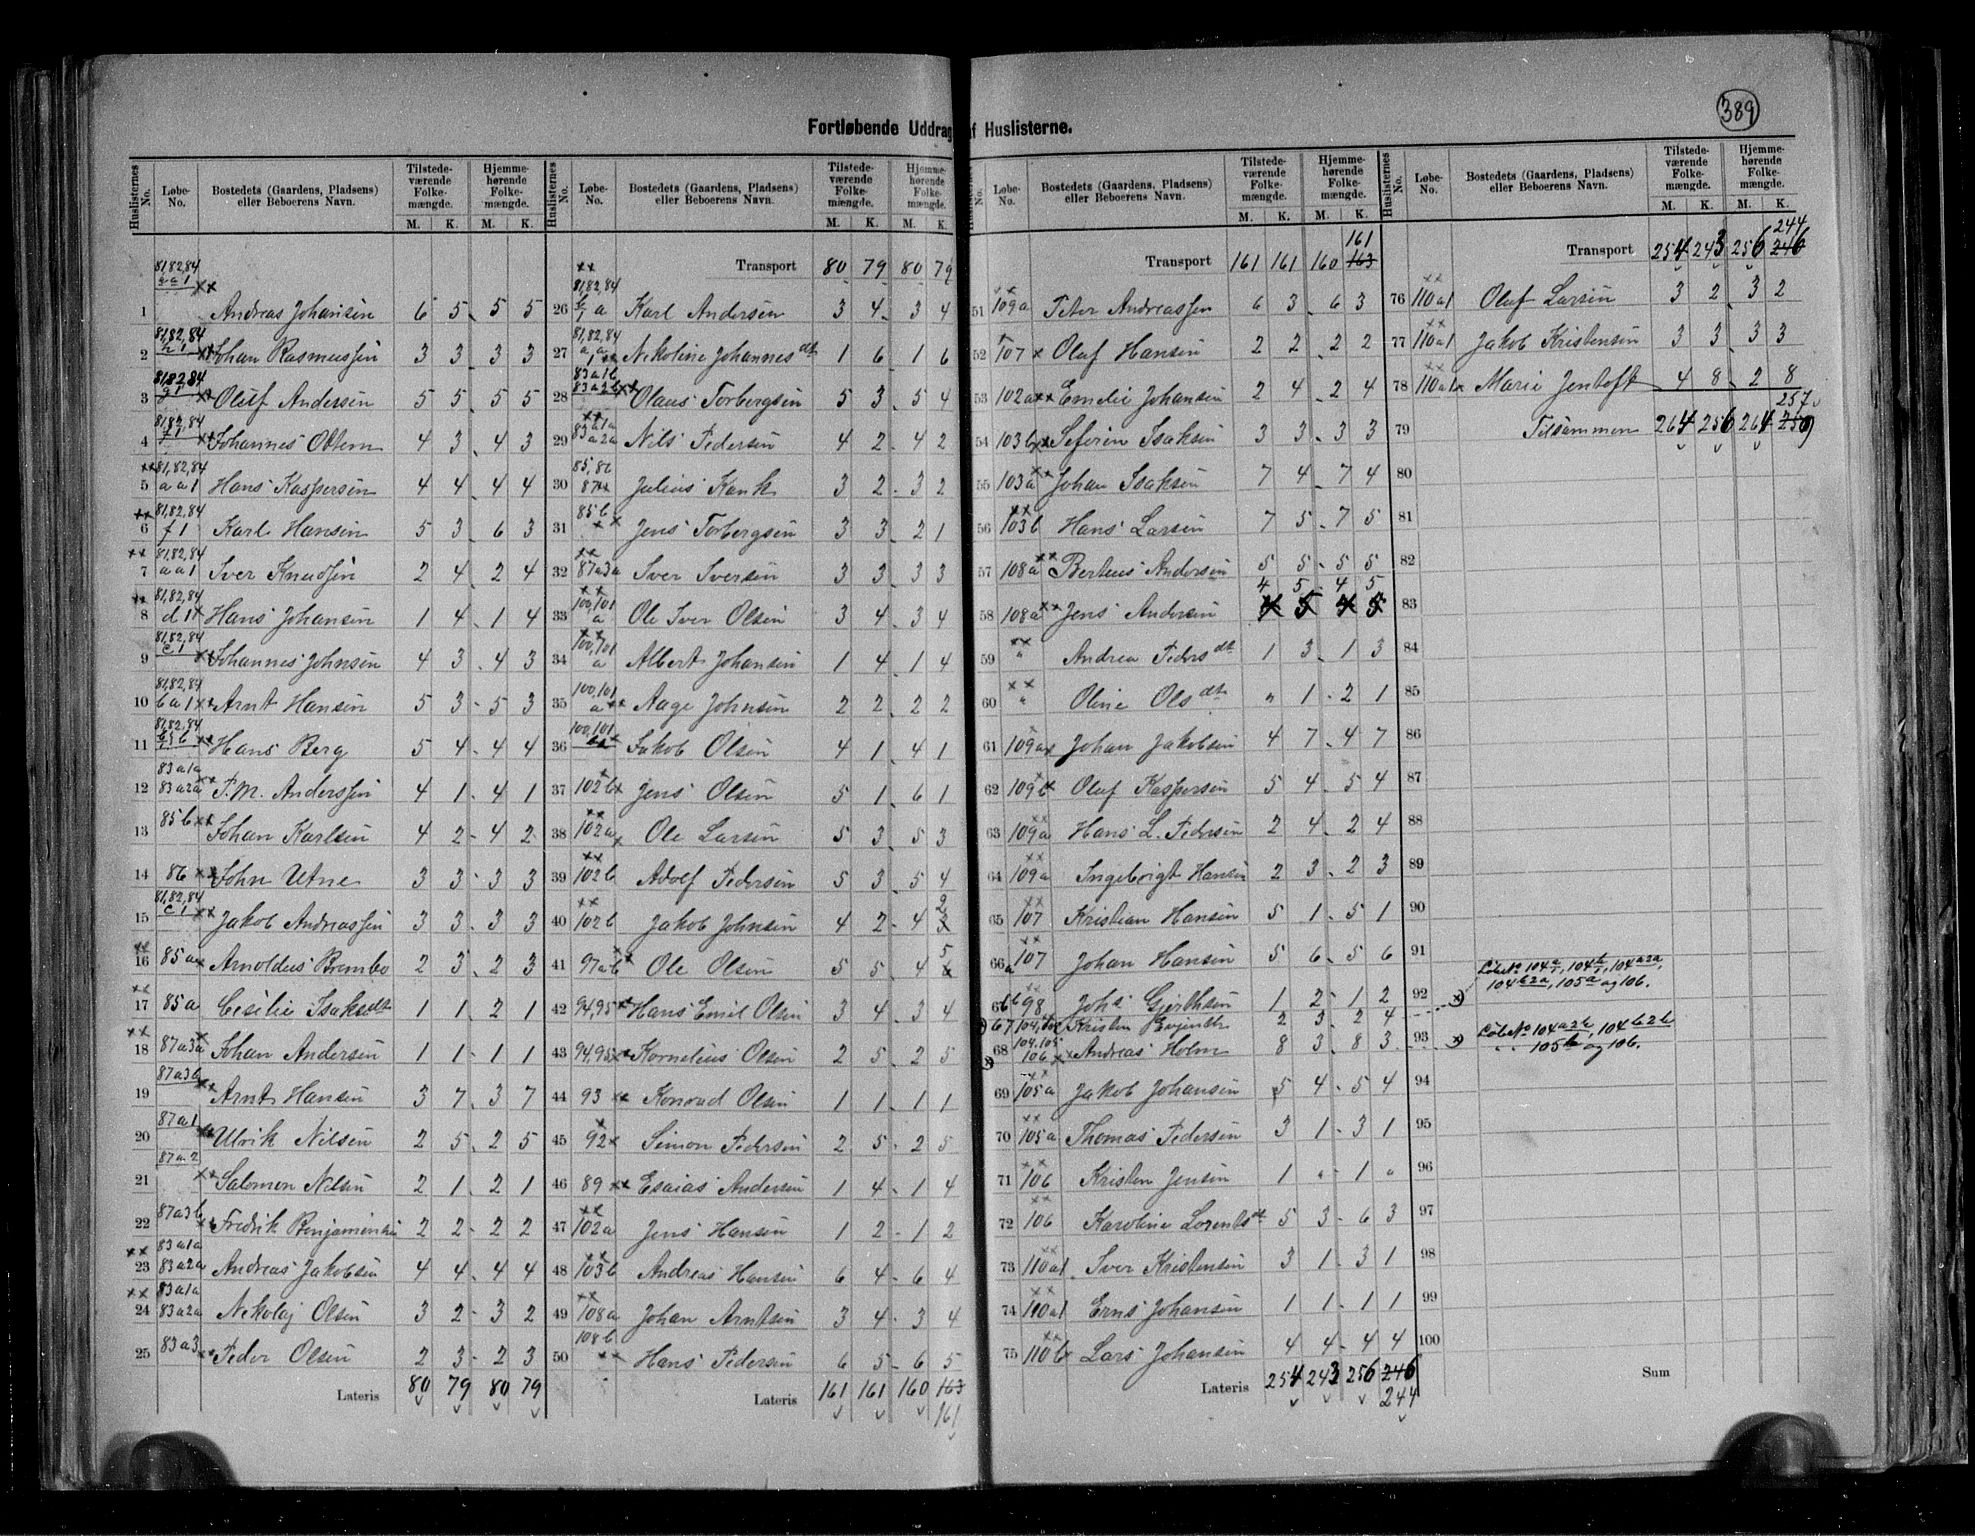 389
Fortløbende Uddrag af Huslisterne.
Huslisternes No. Løbe-No. Bostedets (Gaardens, Pladsens) eller Beboerens Navn. Tilstede-værende Folke-mængde. M. K. Hjemme-hørende Folke-mængde. M. K.
1 81,82,84 Andreas Johansen 6 5 5 5
2 81,82,84 h 1 Johan Rasmussen 3 3 3 3
3 81,82,84 g 1 Oluf Andersen 5 5 5 5
4 81,82,84 Johannes Ottem 4 3 4 3
5 81,82,84 a a 1 Hans Kaspersen 4 4 4 4
6 81,82,84 f 1 Karl Hansen 5 3 6 3
7 81,82,84 a a 1 Iver Knudsen 2 4 2 4
8 81,82,84 d 1 Hans Johansen 1 4 1 4
9 81,82,84 c 1 Johannes Johnsen 4 3 4 3
10 81,82,84 b a 1 Arnt Hansen 5 3 5 3
11 81,82,84 Hans Berg 5 4 4 4
12 83a1a 83a2a P. M. Anderssen 4 1 4 1
13 85b Johan Karlsen 4 2 4 2
14 86 John Utne 3 3 3 3
15 81,82,84 c 1 Jakob Andreassen 3 3 3 3
16 85a Arnoldus Brembo 2 3 2 3
17 85a Cesilie Isaksdt 1 1 2 1
18 87a3a Johan Andersen 1 1 1 1
19 87a3b Arnt Hansen 3 7 3 7
20 87a1 Ulrik Nilsen 2 5 2 5
21 87a2 Salomon Nilsen 2 1 2 1
22 87a3b Fredrik Benjaminsen 2 2 2 2
23 83a1a 83a2a Andreas Jakobsen 4 4 4 4
24 83a1a 83a2a Nekolaj Olsen 3 2 3 2
25 83a3 Peder Olsen 2 3 2 3
Lateris 80 79 80 79
Huslisternes No. Løbe-No. Bostedets (Gaardens, Pladsens) eller Beboerens Navn. Tilstede-værende Folke-mængde. M. K. Hjemme-hørende Folke-mængde. M. K.
Transport 80 79 80 79
26 81,82,84 Karl Andersen 3 4 3 4
27 81,82,84 Nekoline Johannesdt 1 6 1 6
28 83a1b 83a2b Olaus Torbergsen 5 3 5 4
29 83a1a 83a2a Nils Pedersen 4 2 4 2
30 85,86 87 Julius Kank 3 2 3 2
31 85b Jens Torbergsen 3 3 2 1
32 87a3a Iver Iversen 3 3 3 3
33 100,101 a Ole Iver Olsen 3 4 3 4
34 100,101 a Albert Johansen 1 4 1 4
35 100,101 a Aage Johnsen 2 2 2 2
36 100,101 Jakob Olsen 4 1 4 1
37 102b Jens Olsen 5 1 6 1
38 102a Ole Larsen 5 3 5 3
39 102b Adolf Pedersen 5 3 5 4
40 102b Jakob Johnsen 4 2 4 2 3
41 97ab Ole Olsen 5 5 4 5
42 94,95 Hans Emil Olsen 3 4 3 4
43 94,95 Kornelius Olsen 2 5 2 5
44 93 Konrad Olsen 1 1 1 1
45 92 Simon Pedersen 2 5 2 5
46 89 Esaias Andersen 1 4 1 4
47 102a Jens Hansen 1 2 1 2
48 103b Andreas Hansen 6 4 6 4
49 108a Johan Arntsen 3 4 3 4
50 108b Hans Pedersen 6 5 6 5
Lateris 161 161 160 163
161
No. Løbe-No. Bostedets (Gaardens, Pladsens) eller Beboerens Navn. Tilstede-værende Folke-mængde. M. K. Hjemme-hørende Folke-mængde. M. K.
161
Transport 161 161 160 163
51 109a Peter Andreassen 6 3 6 3
52 107 Oluf Hansen 2 2 2 2
53 102a Emelie Johansen 2 4 2 4
54 103b Seferin Isaksen 3 3 3 3
55 103a Johan Isaksen 7 4 7 4
56 103b Hans Larsen 7 5 7 5
57 108a Berteus Andersen 5 5 5 5
4 5 4 5
58 108a Jens Andersen 4 5 4 5
59 " Andrea Pedersdt 1 3 1 3
60 " Oline Olsdt " 1 2 1
61 109a Johan Jakobsen 4 7 4 7
62 109b Oluf Kaspersen 5 4 5 4
63 109a Hans L. Pedersen 2 4 2 4
64 109a Ingebrigt Hansen 2 3 2 3
65 107 Kristian Hansen 5 1 5 1
66a 107 Johan Hansen 5 6 5 6
66b 98 Johs Gjerthsen 1 2 1 2
67 104, Kristen 2 3 2 4
68 104,105 106 Andreas Holm 8 3 8 3
69 105a Jakob Johansen 5 4 5 4
70 105a Thomas Pedersen 3 1 3 1
71 106 Kristen Jensen 1 " 1 "
72 106 Karoline Lorentsdt 5 3 6 3
73 110a1 Iver Kristensen 3 1 3 1
74 110a1 Erns Johansen 1 1 1 1
75 110b Lars Johansen 4 4 4 4
Lateris 254 243 256 246
244
Huslisternes No. Løbe-No. Bostedets (Gaardens, Pladsens) eller Beboerens Navn. Tilstede-værende Folke-mængde. M. K. Hjemme-hørende Folke-mængde. M. K.
244
Transport 254 243 256 246
76 110a1 Oluf Larsen 3 2 3 2
77 110a1 Jakob Kristensen 3 3 3 3
78 110a1 Marie Jentoft 4 8 2 8
257
79 Tilsammen 264 256 264 259
80
81
82
83
84
85
86
87
88
89
90
91
Løbe No 104, 104, 104a2a,
92 104b2a, 105a og 106.
93 Løb No 104a2b, 104b2b
105b og 106.
94
95
96
97
98
99
100
Sum